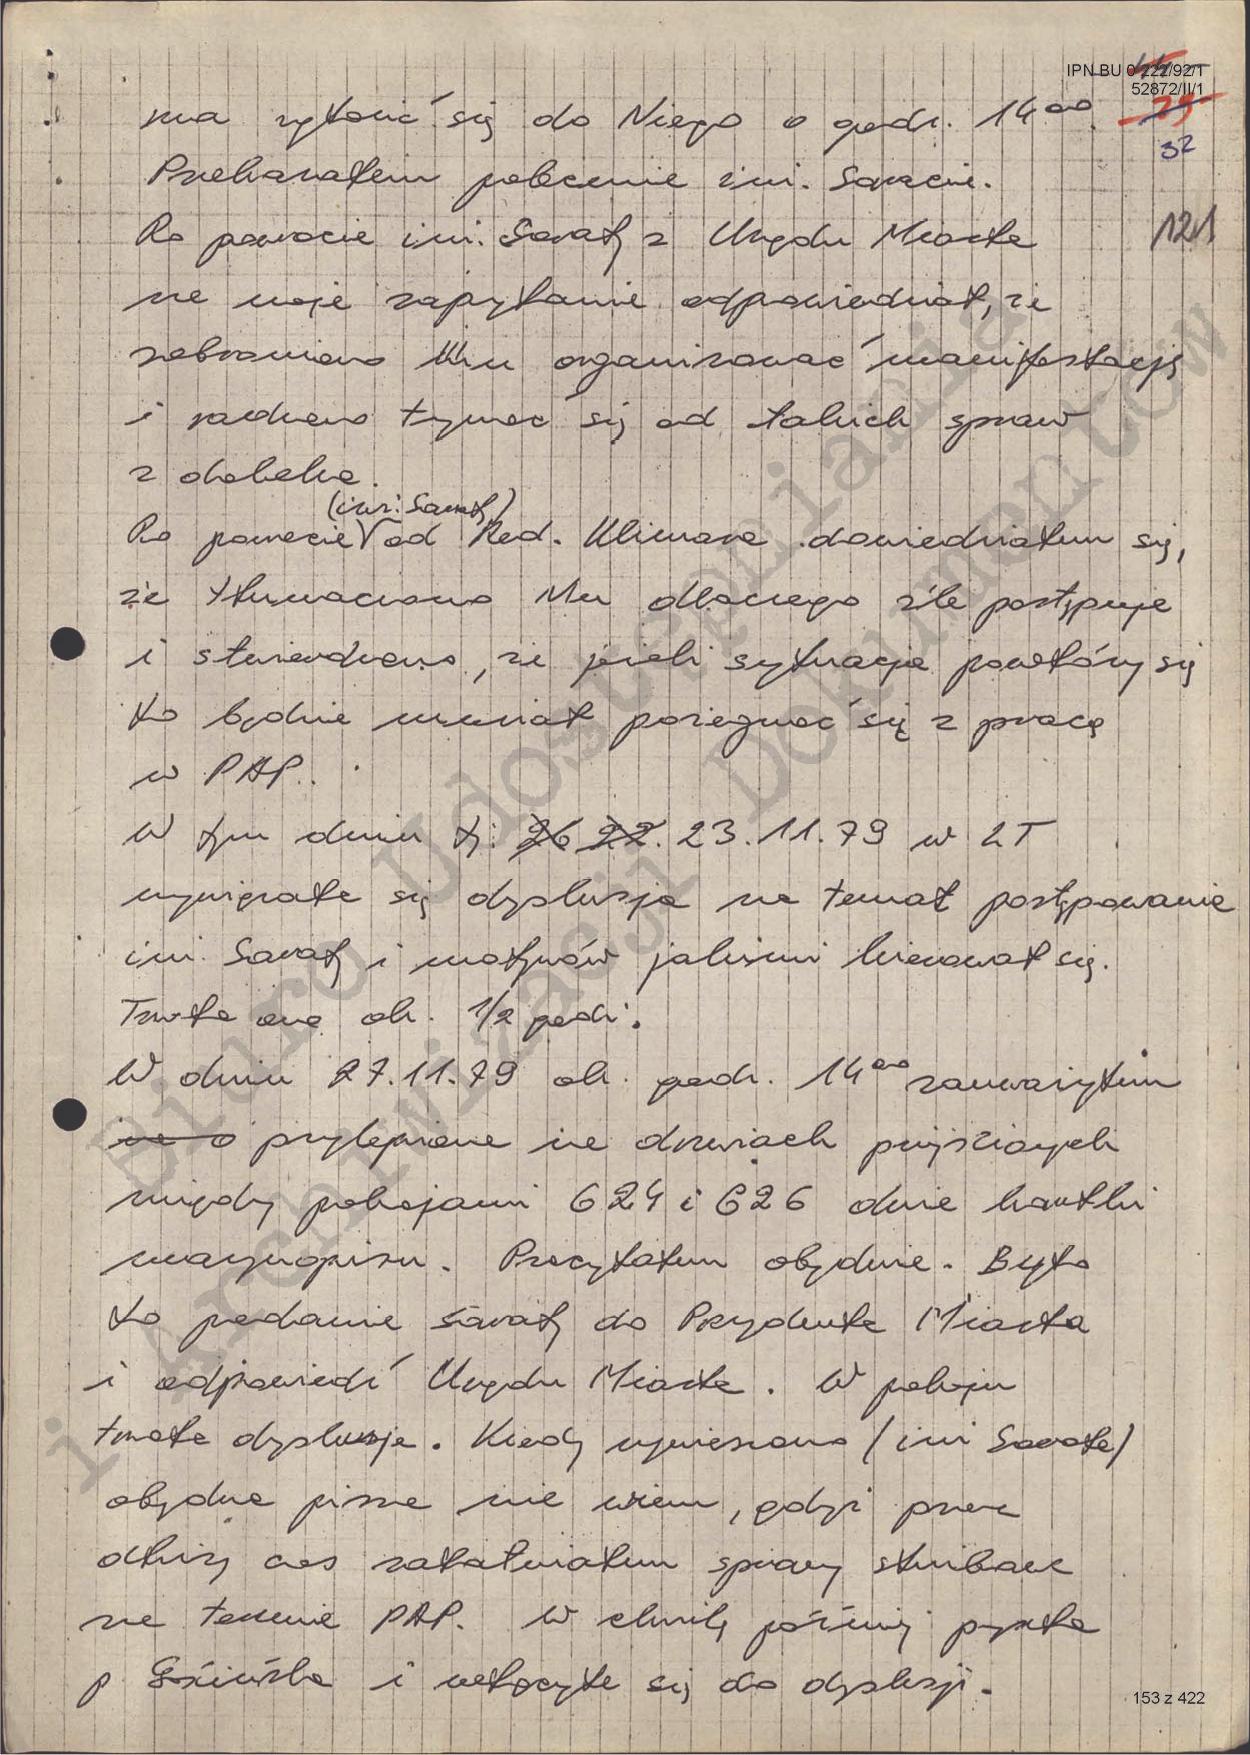 IPN BU 0 222/92/1
52872/II/1
29
32
121
ma zgłosić się do Niego o godz. 14⁰⁰.
Przekazałem polecenie inż. Sawacie.
Po powrocie inż. Sawaty z Urzędu Miasta
na moje zapytanie odpowiedział, że
zabroniono Mu organizować manifestację
i radzono trzymać się od takich spraw
z daleka.
(inż. Sawaty)
Po powrocie √ od Red. Klimasa dowiedziałem się,
że tłumaczono Mu dlaczego źle postępuje
i stwierdzono, że jeżeli sytuacja powtórzy się
to będzie musiał pożegnać się z pracą
w PAP.
W tym dniu tj. 26 22. 23.11.79 w ŁT
wywiązała się dyskusja na temat postępowania
inż. Sawaty i motywów jakimi kierował się.
Trwała ona ok. 1/2 godz.
W dniu 27.11.79 ok. godz. 14⁰⁰ zauważyłem
na o przylepione na drzwiach przejściowych
między pokojami 624 i 626 dwie kartki
maszynopisu. Przeczytałem obydwie. Było
to podanie Sawaty do Prezydenta Miasta
i odpowiedź Urzędu Miasta. W pokoju
trwała dyskusja. Kiedy wywieszono /inż Sawata/
obydwa pisma nie wiem, gdyż przez
dłuższy czas załatwiałem sprawy służbowe
na terenie PAP. W chwilę później przyszła
p i włączyła się do dyskusji.
153 z 422
Biuro Udostępniania
i Archiwizacji Dokumentów